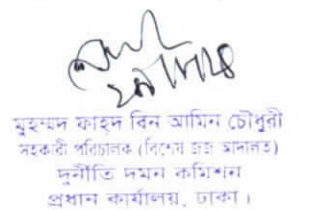 মুহম্মদ ফাহদ বিন আমিন চৌধুরী
সহকারী পরিচালক (বিশেষ জজ আদালত)
দুর্নীতি দমন কমিশন
প্রধান কার্যালয়, ঢাকা।